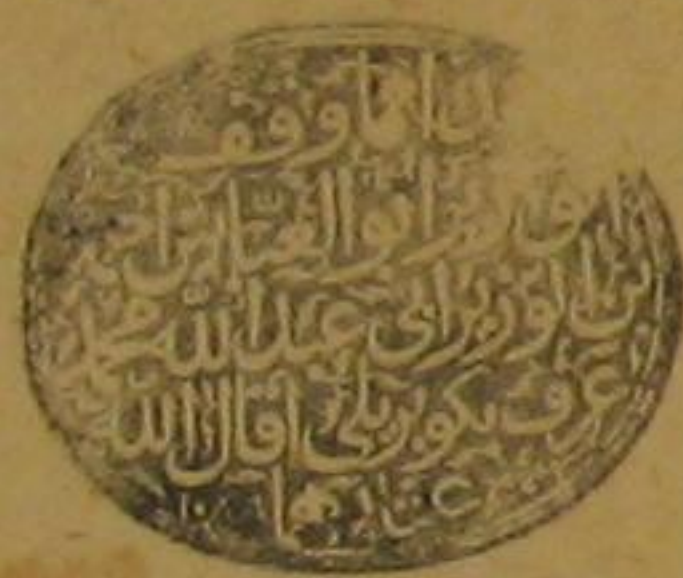 هذا مما وقف
الوزير ابو العباس احمد
ابن الوزير ابى عبد الله محمد
عرف بكوبريلى اقال الله
عثارهما